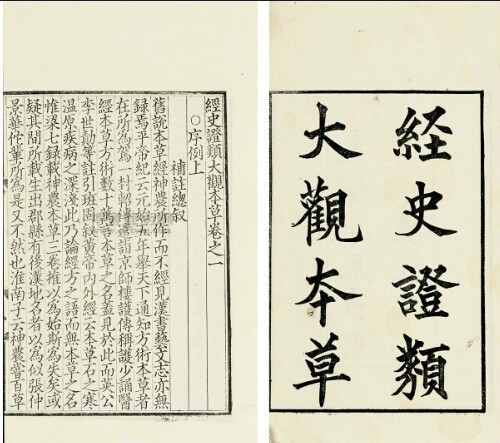 経史證類
大觀本草
經史證類大觀本草卷之一
○序例上
補註總叙
舊說本草經神農所作而不經見漢書藝文志亦無
録焉平帝紀云元始五年舉天下通知方術本草者
在所為駕一封軺傳遣詣京師樓護傳稱護少誦醫
經本草方術數十萬言本草之名蓋見於此而英公
李世勣等註引班固叙黄帝内外經云本草石之寒
温原疾病之深淺此乃論經方之語而無本草之名
惟梁七録載神農本草三卷推以為始斯為失矣或
疑其間所載生出郡縣有後漢地名者以為似張仲
景華佗軰所為是又不然也淮南子云神農嘗百草